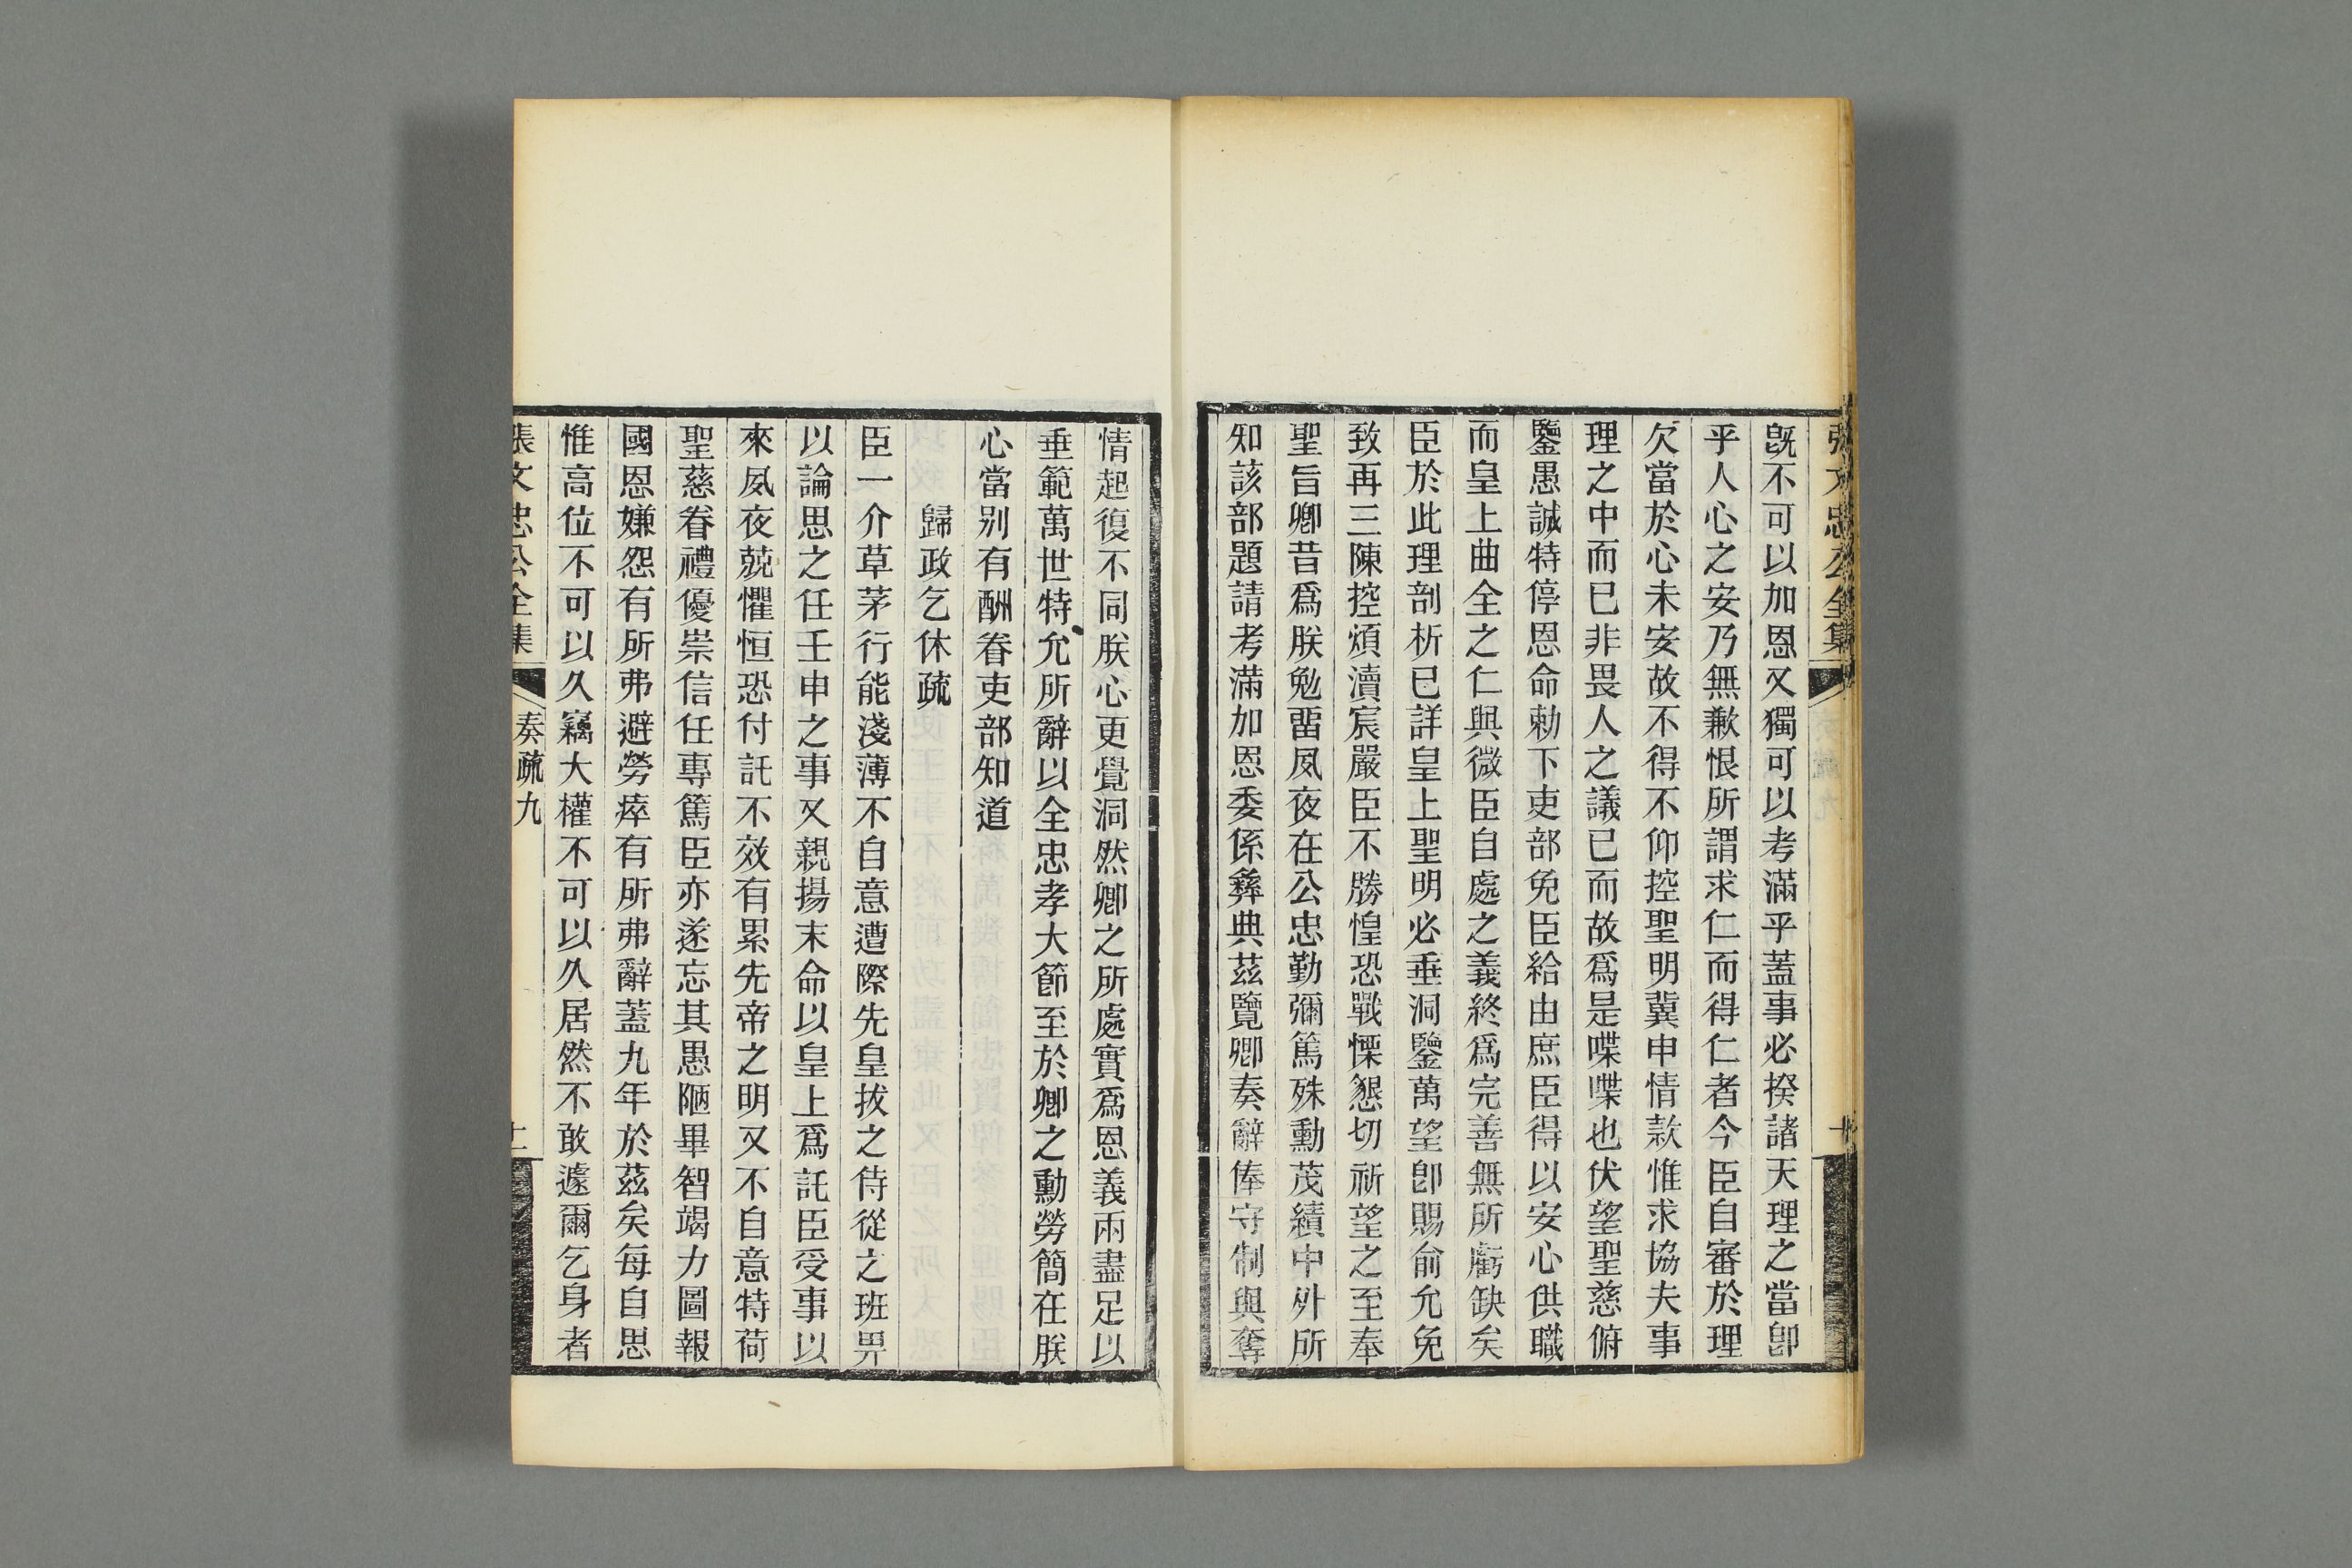 張文忠公全集
既不可以加恩又獨可以考滿乎蓋事必揆諸天理之當卽
乎人心之安乃無歉恨所謂求仁而得仁者今臣自審於理
欠當於心未安故不得不仰控聖明冀申情款惟求協夫事
理之中而已非畏人之議已而故爲是喋喋也伏望聖慈俯
鑒愚誠特停恩命勅下吏部免臣給由庶臣得以安心供職
而皇上曲全之仁與微臣自處之義終爲完善無所虧缺矣
臣於此理剖析已詳皇上聖明必垂洞鑒萬望卽賜俞允免
致再三陳控煩瀆宸嚴臣不勝惶恐戰慄懇切祈望之至奉
聖旨卿昔爲朕勉畱夙夜在公忠勤彌篤殊勳茂績中外所
知該部題請考滿加恩委係彝典茲覽卿奏辭俸守制與奪
情起復不同朕心更覺洞然卿之所處實爲恩義兩盡足以
垂範萬世特允所辭以全忠孝大節至於卿之勳勞簡在朕
心當别有酬眷吏部知道
歸政乞休疏
臣一介草茅行能淺薄不自意遭際先皇拔之侍從之班畀
以論思之任壬申之事又親揚末命以皇上爲託臣受事以
來夙夜兢懼恒恐付託不效有累先帝之明又不自意特荷
聖慈眷禮優崇信任專篤臣亦遂忘其愚陋畢智竭力圖報
國恩嫌怨有所弗避勞瘁有所弗辭蓋九年於茲矣每自思
惟高位不可以久竊大權不可以久居然不敢遽爾乞身者
張文忠公全集
奏疏九